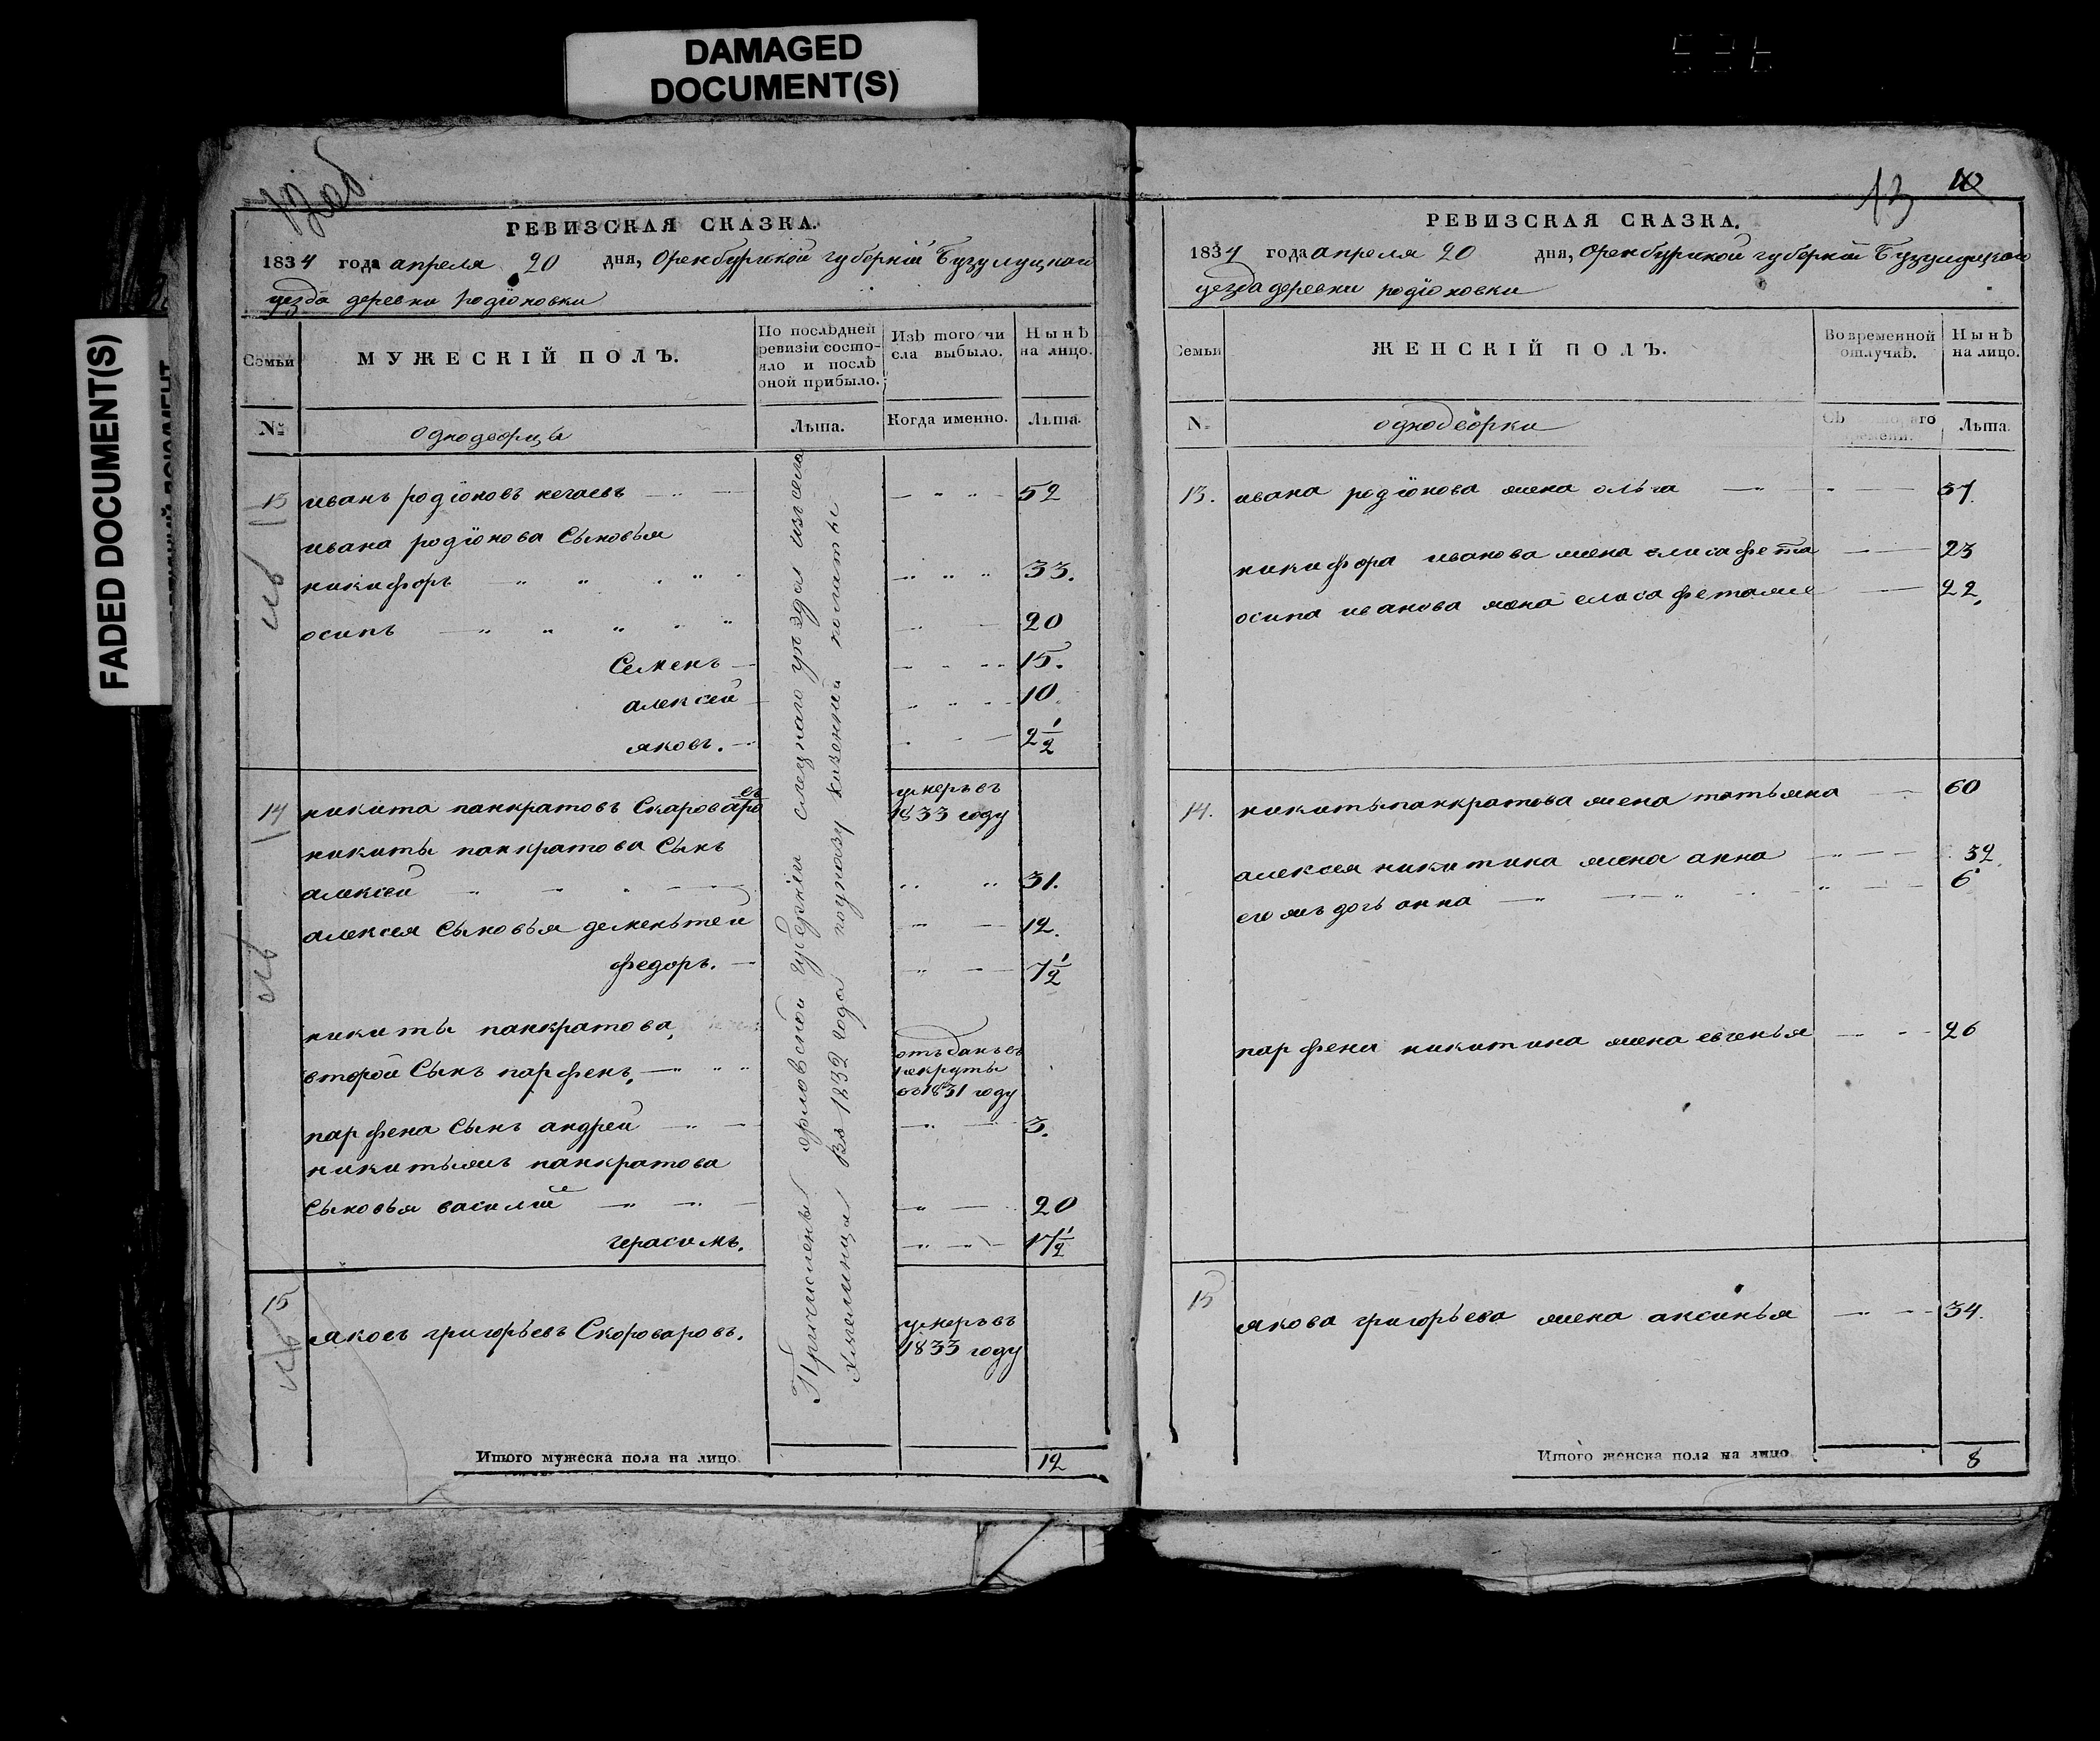 DAMAGED
DOCUMENT(S)
FADED DOCUMENT(S)
12об
РЕВИЗСКАЯ СКАЗКА.
1834 года апреля 20 дня, Оренбургской губернїи Бузулуцкаго
уезда деревни родїоновки
Семьи
МУЖЕСКІЙ ПОЛЪ.
По послѣдней
ревизіи состо-
яло и послѣ
оной прибыло.
Изъ того чи
сла выбыло.
Нынѣ
на лицо.
№
однодворцы
Лѣта.
Когда именно.
Лѣта.
13 иванъ родїоновъ нечаевъ 52
ивана родїонова Сыновья
никифоръ 33.
осипъ 20
Семенъ 15.
алексей 10
яковъ. 2 1/2
14 никита панкратовъ Скаровара умеръ въ
1833 году
никиты панкратова Сынъ
алексей 31.
алексея Сыновья деменьтей 12.
федоръ. 7 1/2
никиты панкратова,
второй Сынъ парфенъ, отъданъ въ
рекруты
въ 1831 году
парфена Сынъ андрей 3.
никитыжъ панкратова
Сыновья василий 20
герасимъ. 17 1/2
15 яковъ григорьевъ Скороваровъ. умеръ въ
1833 году
Причислены орловской губернїи елецкаго уезда изъ села
въ 1832 года по указу казенной палаты
Итого мужеска пола на лицо 12
13 10
РЕВИЗСКАЯ СКАЗКА.
1834 года апреля 20 дня, Оренбургской губернїи Бузулуцкаго
уезда деревни родїоновки
Семьи
ЖЕНСКІЙ ПОЛЪ.
Во временной
отлучкѣ.
Нынѣ
на лицо.
№
однодворки
Лѣта.
13. ивана родїонова жена ольга 57.
никифора иванова жена елисафета 23
осипа иванова жена елисафетаже 22.
14. никиты панкратова жена татьяна 60
алексея никитина жена анна 32.
егожъ дочь анна 6
парфена никитина жена евгенья 26
15 якова григорьева жена аксинья 34.
Итого женска пола на лицо 8